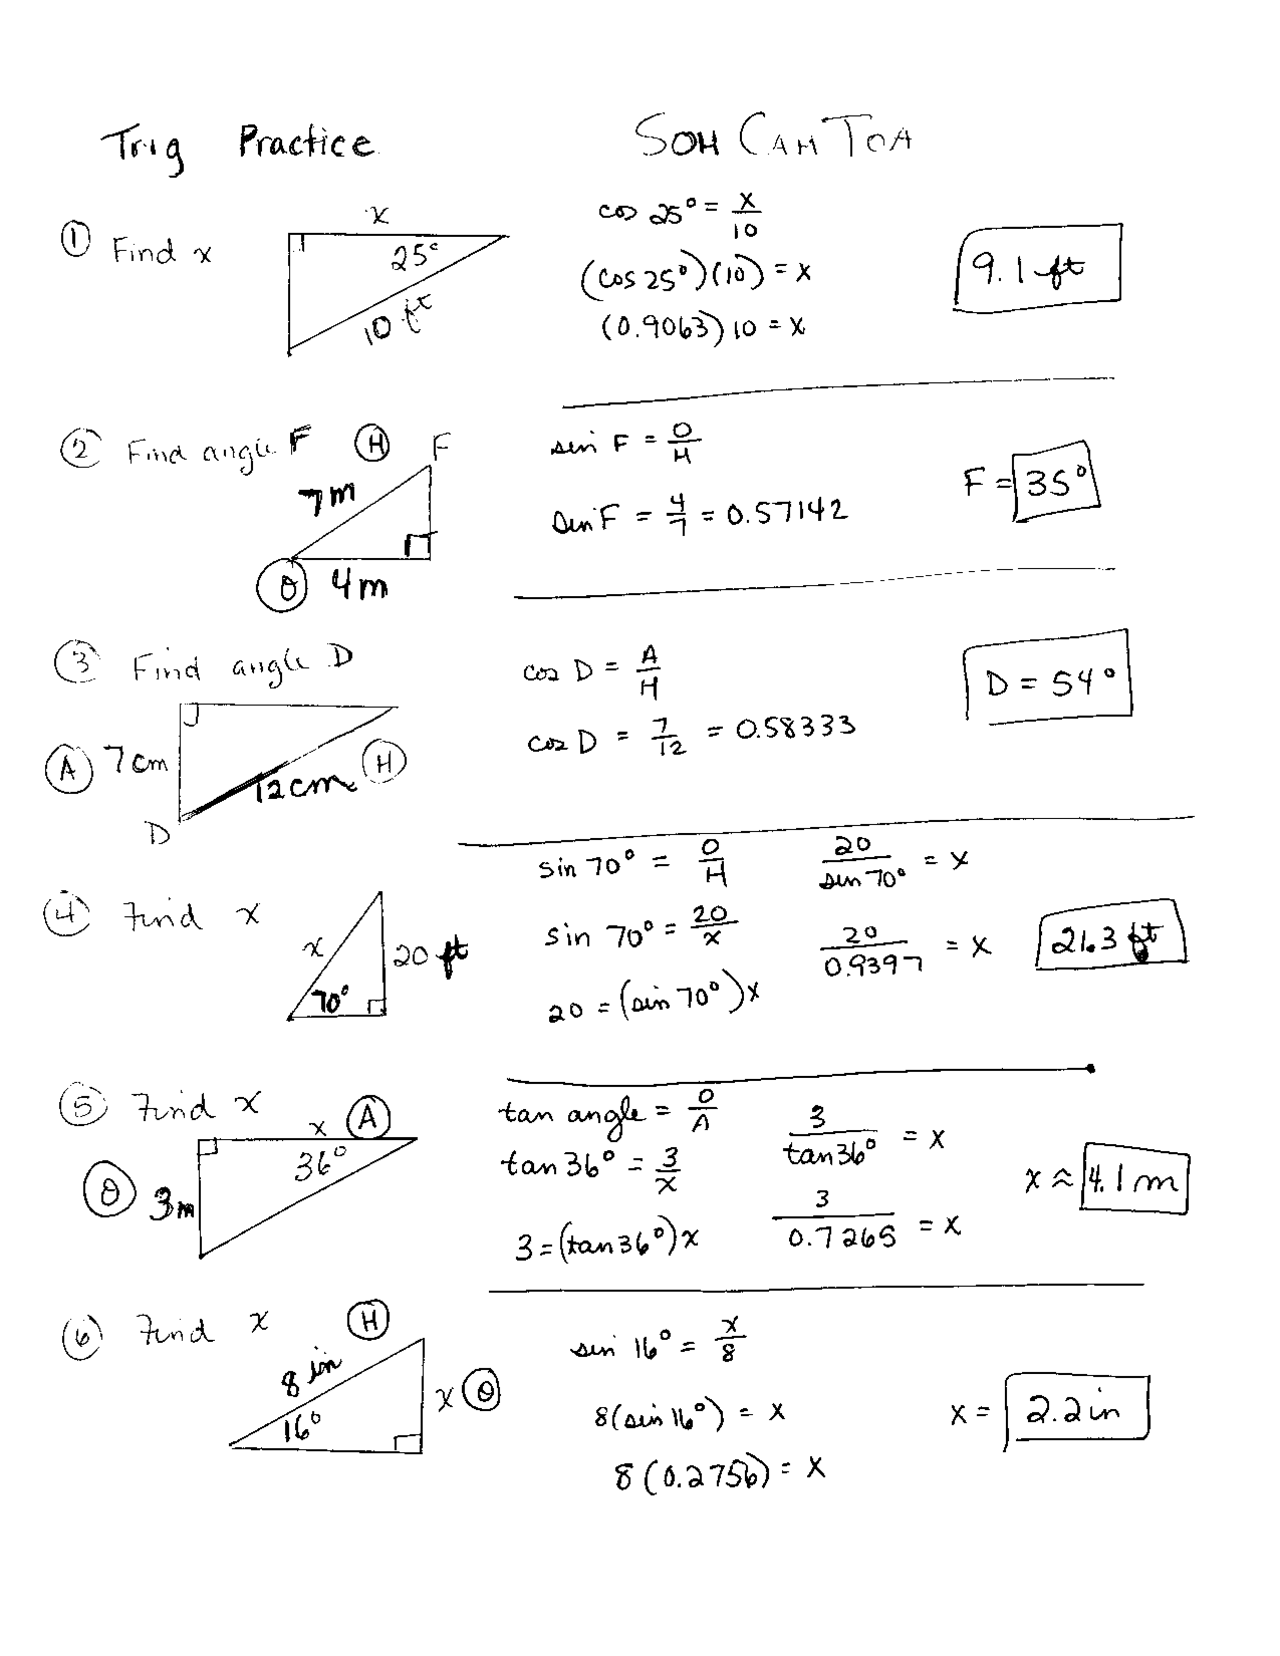 Trig Practice
SOH CAH TOA
① Find x
x
25°
10 ft
cos 25° = x/10
(cos 25°)(10) = x
(0.9063)10 = x
9.1 ft
② Find angle F
H
F
7m
O 4m
sin F = O/H
sin F = 4/7 = 0.57142
F = 35°
③ Find angle D
A 7cm
12cm H
D
cos D = A/H
cos D = 7/12 = 0.58333
D = 54°
④ Find x
x
20 ft
70°
sin 70° = O/H
sin 70° = 20/x
20 = (sin 70°)x
20/sin 70° = x
20/0.9397 = x
21.3 ft
⑤ Find x
x A
36°
O 3m
tan angle = O/A
tan 36° = 3/x
3 = (tan 36°)x
3/tan 36° = x
3/0.7265 = x
x ≈ 4.1 m
⑥ Find x
H
8 in
x O
16°
sin 16° = x/8
8(sin 16°) = x
8(0.2756) = x
x = 2.2 in